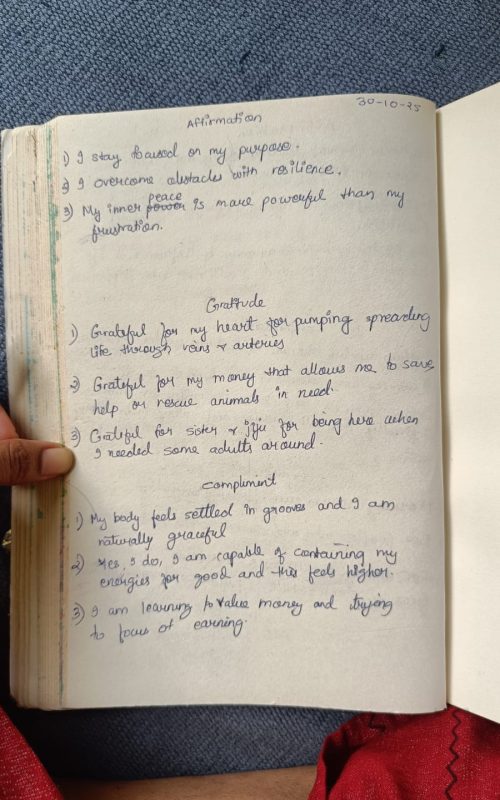 30-10-25
Affirmation
1) I stay focused on my purpose.
2) I overcome obstacles with resilience.
peace
3) My inner power is more powerful than my
frustration.
Gratitude
1) Grateful for my heart for pumping spreading
life through veins & arteries
2) Grateful for my money that allows me to save,
help or rescue animals in need.
3) Grateful for sister & jiju for being here when
I needed some adults around.
Compliment
1) My body feels settled in grooves and I am
naturally graceful
2) Yes, I do, I am capable of containing my
energies for good and this feels higher.
3) I am learning to value money and trying
to focus of earning.